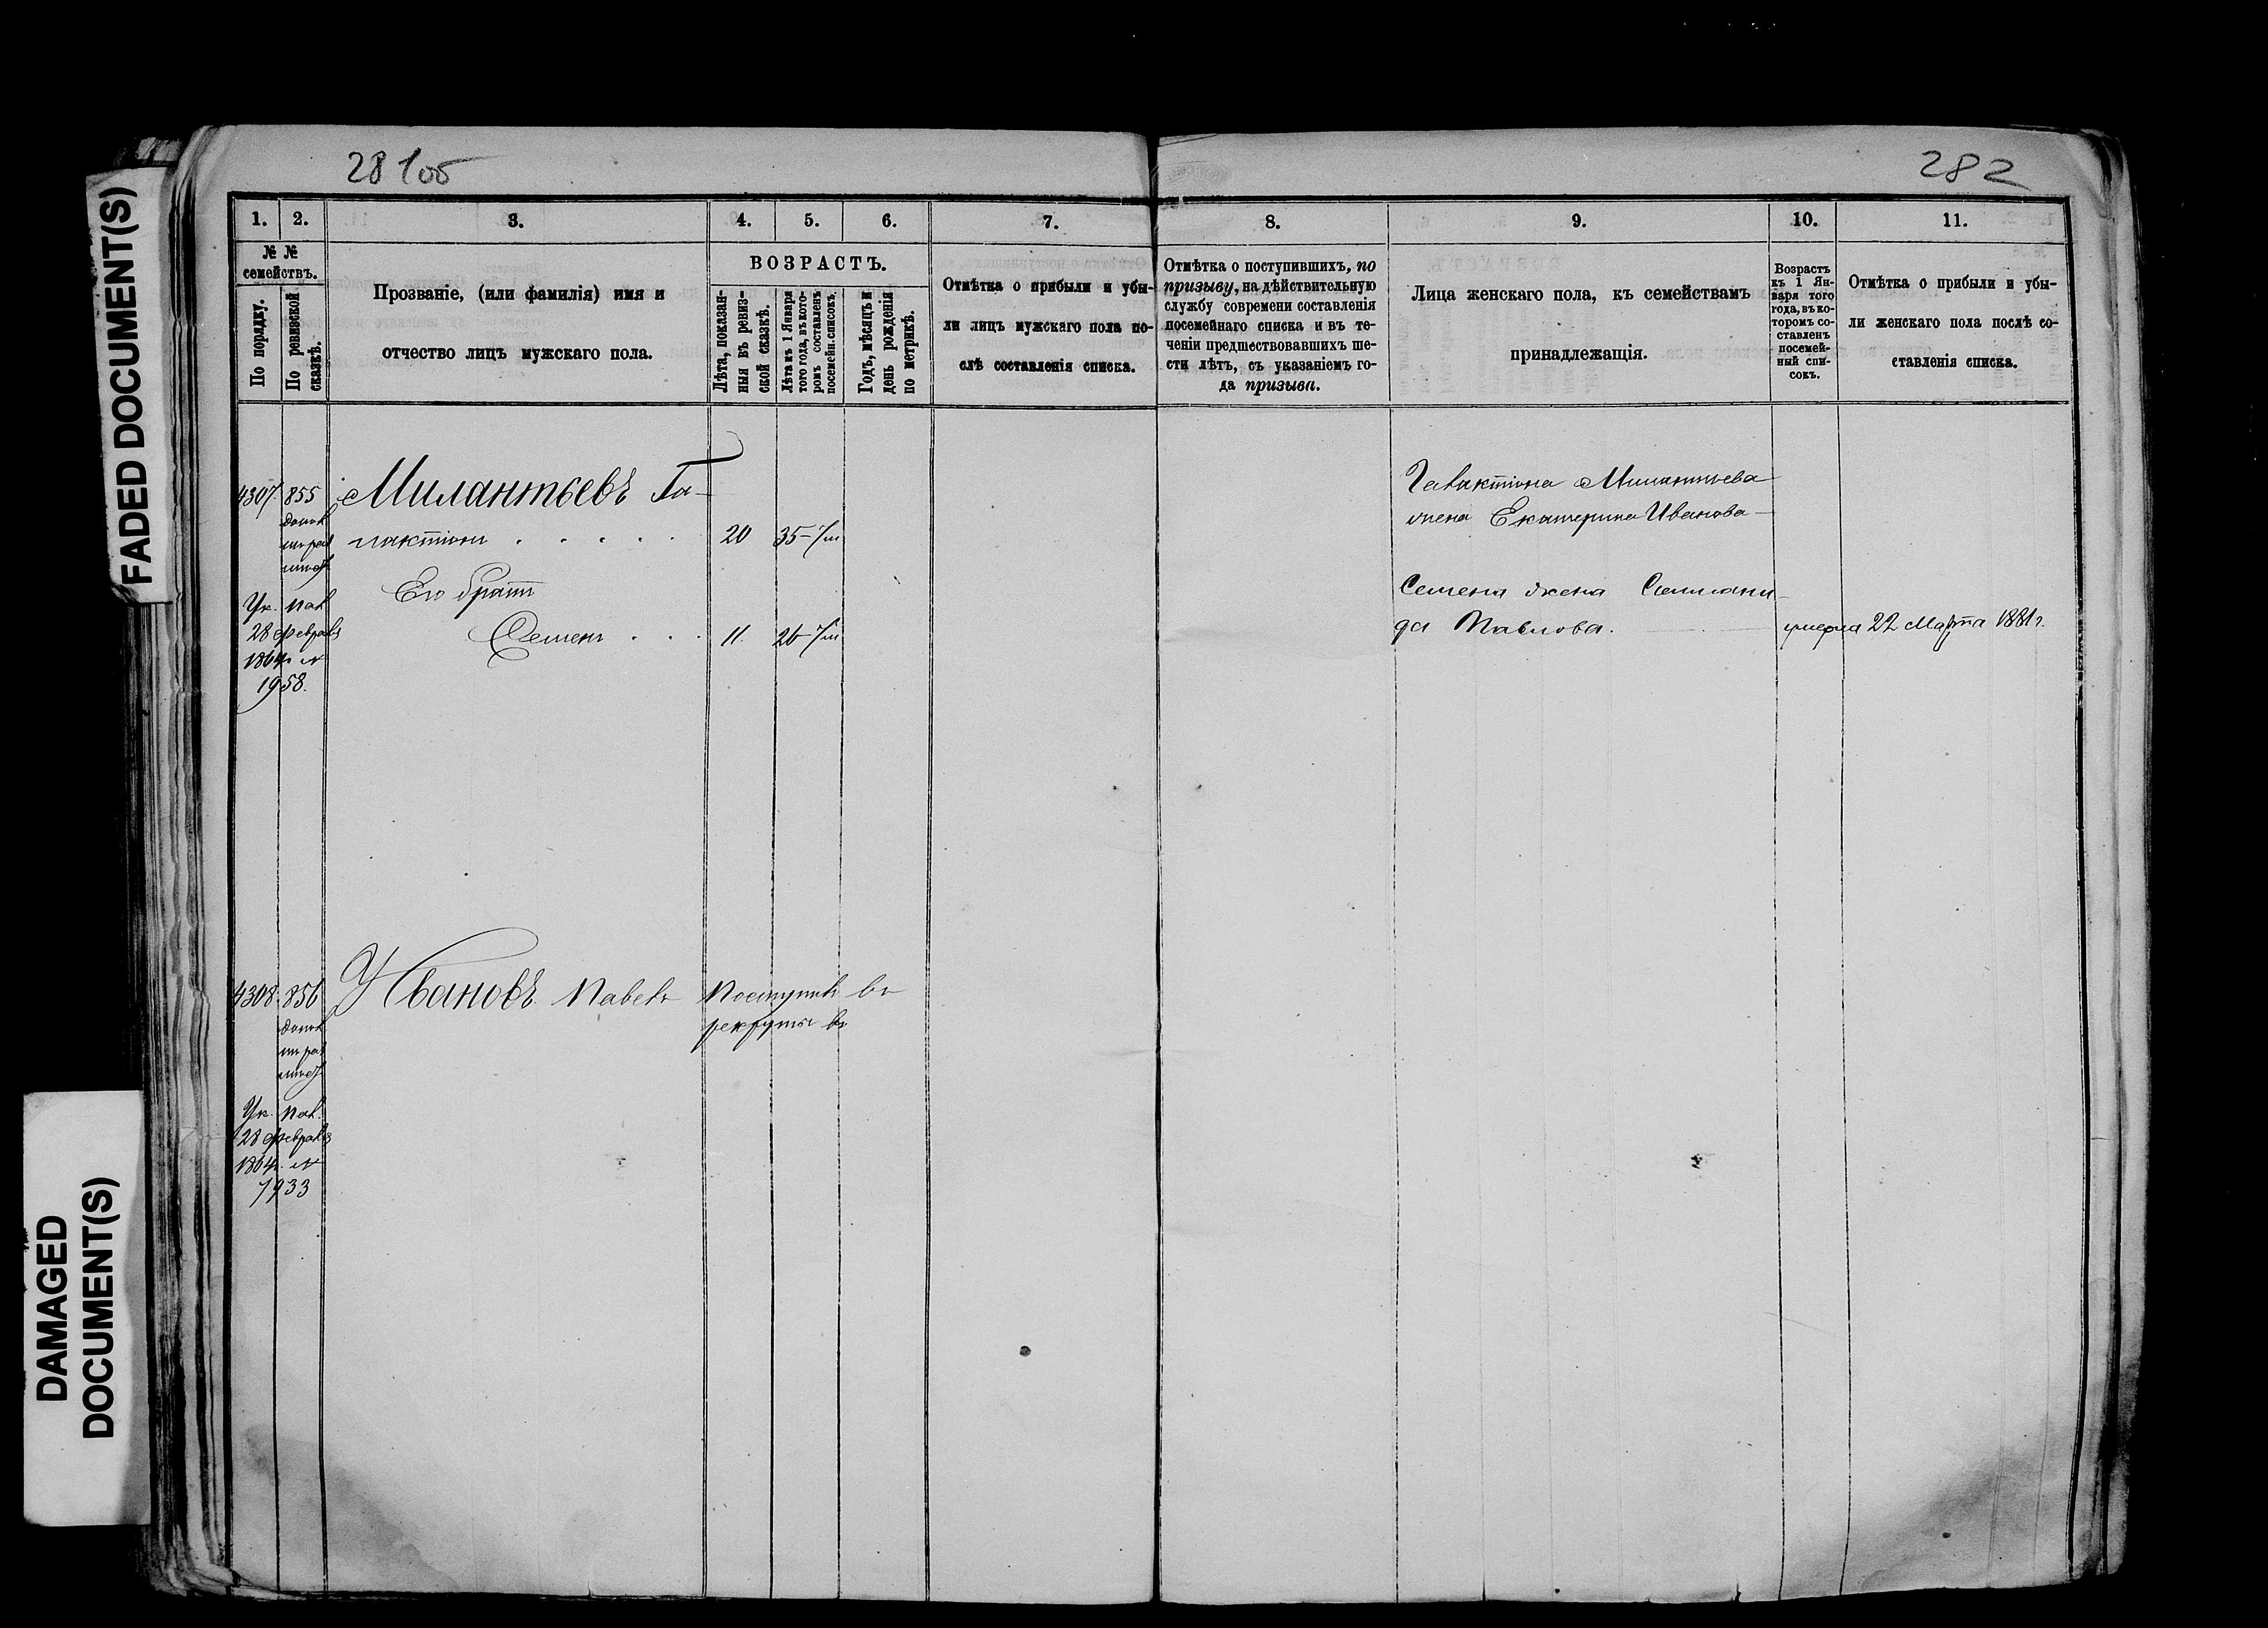 FADED DOCUMENT(S)
DAMAGED
DOCUMENT(S)
281об
282
1.
2.
3.
4.
5.
6.
7.
№ №
семействъ.
По порядку.
По ревизской
сказкѣ.
Прозваніе, (или фамилія) имя и
отчество лицъ мужскаго пола.
ВОЗРАСТЪ.
Лѣта, показан-
ныя въ ревиз-
ской сказкѣ.
Лѣта къ 1 Января
того года, въ кото-
ромъ составленъ
посемейн. списокъ.
Годъ, мѣсяцъ и
день рожденія
по метрикѣ.
Отмѣтка о прибыли и убы-
ли лицъ мужскаго пола по-
слѣ составленія списка.
8.
9.
10.
11.
Отмѣтка о поступившихъ, по
призыву, на дѣйствительную
службу современи составленія
посемейнаго списка и въ те-
ченіи предшествовавшихъ ше-
сти лѣтъ, съ указаніемъ го-
да призыва.
Лица женскаго пола, къ семействамъ
принадлежащія.
Возрастъ
къ 1 Ян-
варя того
года, въ ко-
торомъ со-
ставленъ
посемей-
ный спи-
сокъ.
Отмѣтка о прибыли и убы-
ли женскаго пола послѣ со-
ставленія списка.
4307 855
Милантьевъ Га-
лактіонъ . . . . . 20 35
Его братъ
Семенъ . . . 11. 26
Ук. Пал.
28 февраля
1864 г. №
1958.
Галактіона Милантьева
жена Екатерина Иванова
Семена жена Степани-
да Павлова. умерла 22 Марта 1881 г.
4308 856
Ивановъ Павелъ Поступилъ въ
рекруты въ
Ук. Пал.
28 февраля
1864 г. №
1933